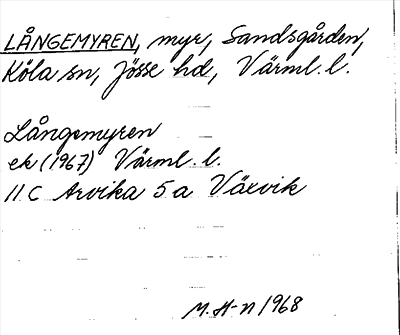 LÅNGEMYREN, myr, Sandsgården,
Köla sn, Jösse hd, Värml. l.
Långemyren
ek (1967) Värml. l.
11 C Arvika 5 a Växvik
M. H-n 1968